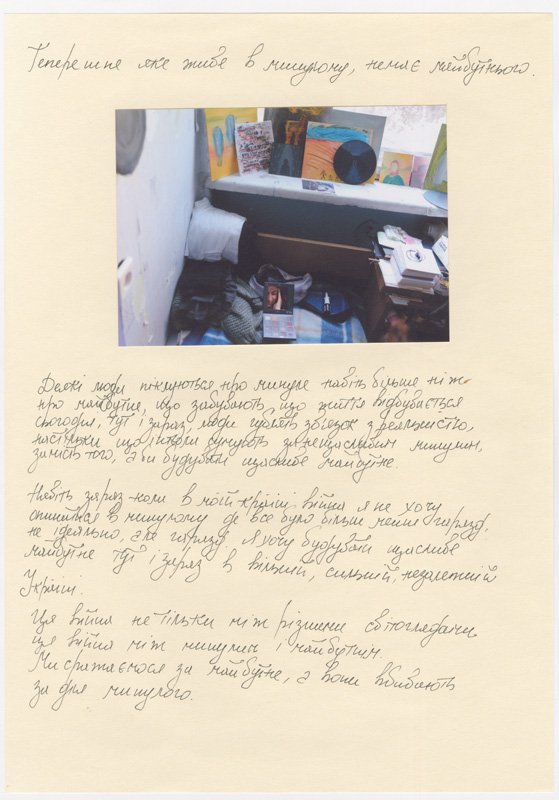 Теперешнє яке живе в минулому, немає майбутнього.
Деякі люди піклуються про минуле навіть більше ніж
про майбутнє, що забувають, що життя відбувається
сьогодня, тут і зараз, люди гублять звʼязок з реальністю,
настільки що інколи сумують за нещасливим минулим,
замість того, аби будували щасливе майбутнє.
Навіть зараз коли в моїй країні війна я не хочу
опинитися в минулому де все було більш менш гаразд,
не ідеально, але гаразд. Я хочу будувати щасливе
майбутнє тут і зараз в вільній, сильній, незалежній
Україні.
Ця війна не тільки між різними світоглядами
ця війна між минулим і майбутнім.
Ми сражаємося за майбутнє, а вони вбивають
за для минулого.